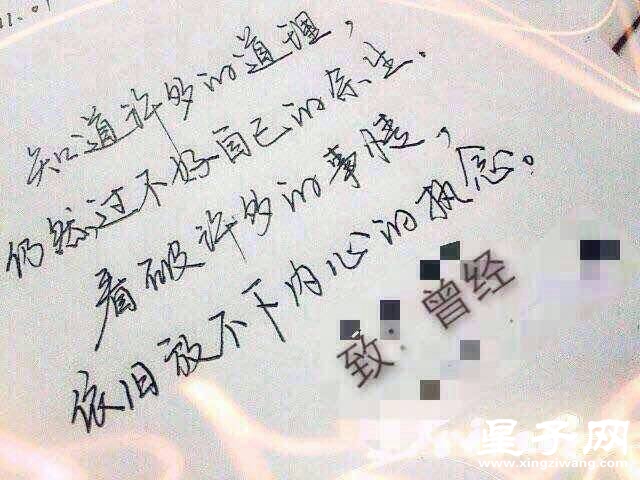 知道许多的道理，
仍然过不好自己的余生.
看破许多的事情，
依旧放不下内心的执念。
致：曾经
www.xingziwang.com